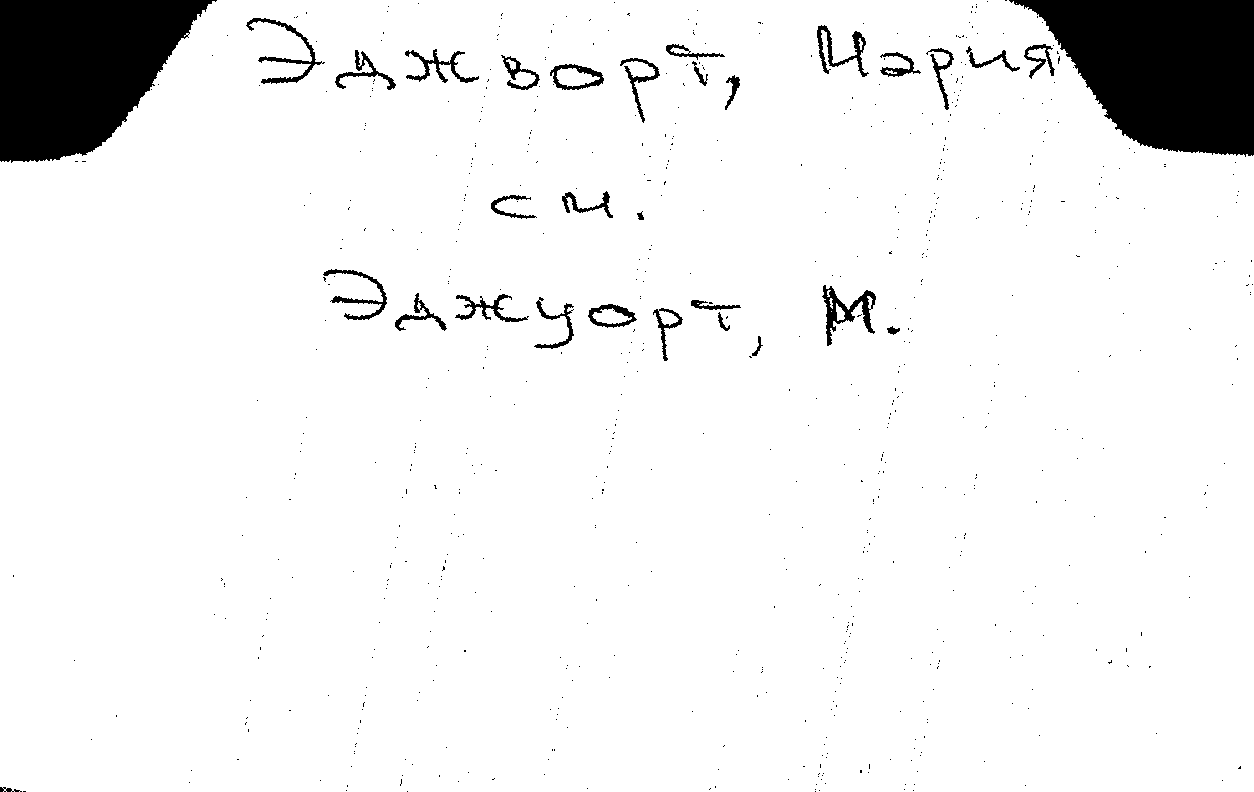 Эджворт, Мария
см.
Эджуорт, М.